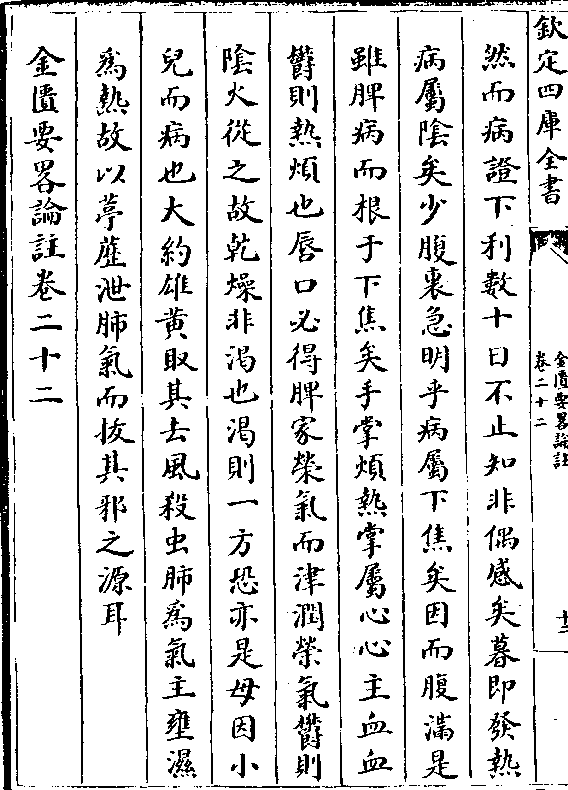 欽定四庫全書
金匱要畧論註
卷二十二
十三
然而病證下利數十日不止知非偶感矣暮即發熱
病屬陰矣少腹裏急明乎病屬下焦矣因而腹滿是
雖脾病而根于下焦矣手掌煩熱掌屬心心主血血
欝則熱煩也唇口必得脾家榮氣而津潤榮氣欝則
陰火從之故乾燥非渴也渴則一方恐亦是母因小
兒而病也大約雄黄取其去風殺虫肺為氣主壅濕
為熱故以葶藶泄肺氣而拔其邪之源耳
金匱要畧論註卷二十二